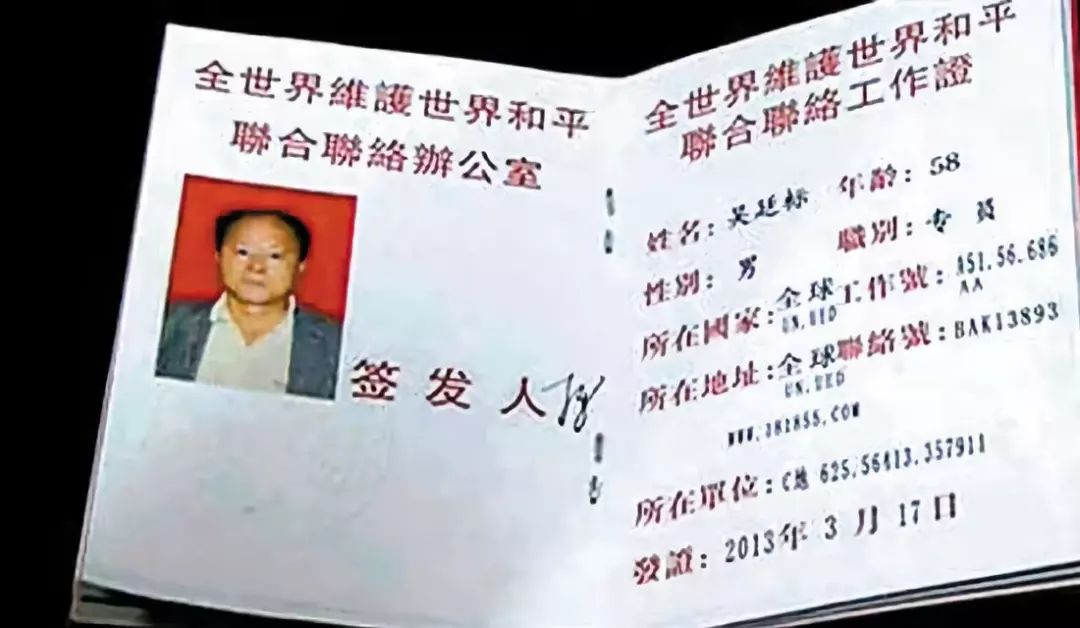 全世界維護世界和平
聯合聯絡辦公室
签发人
全世界維護世界和平
聯合聯絡工作證
姓名：吴廷标 年齡：58
性別：男 職別：专员
所在國家：全球 工作號：A51.56.686
UN.UED AA
所在地址：全球 聯絡號：BAK13893
UN.UED
WWW.181855.COM
所在單位：C地 625.56413.357911
發證：2013年 3 月 17日